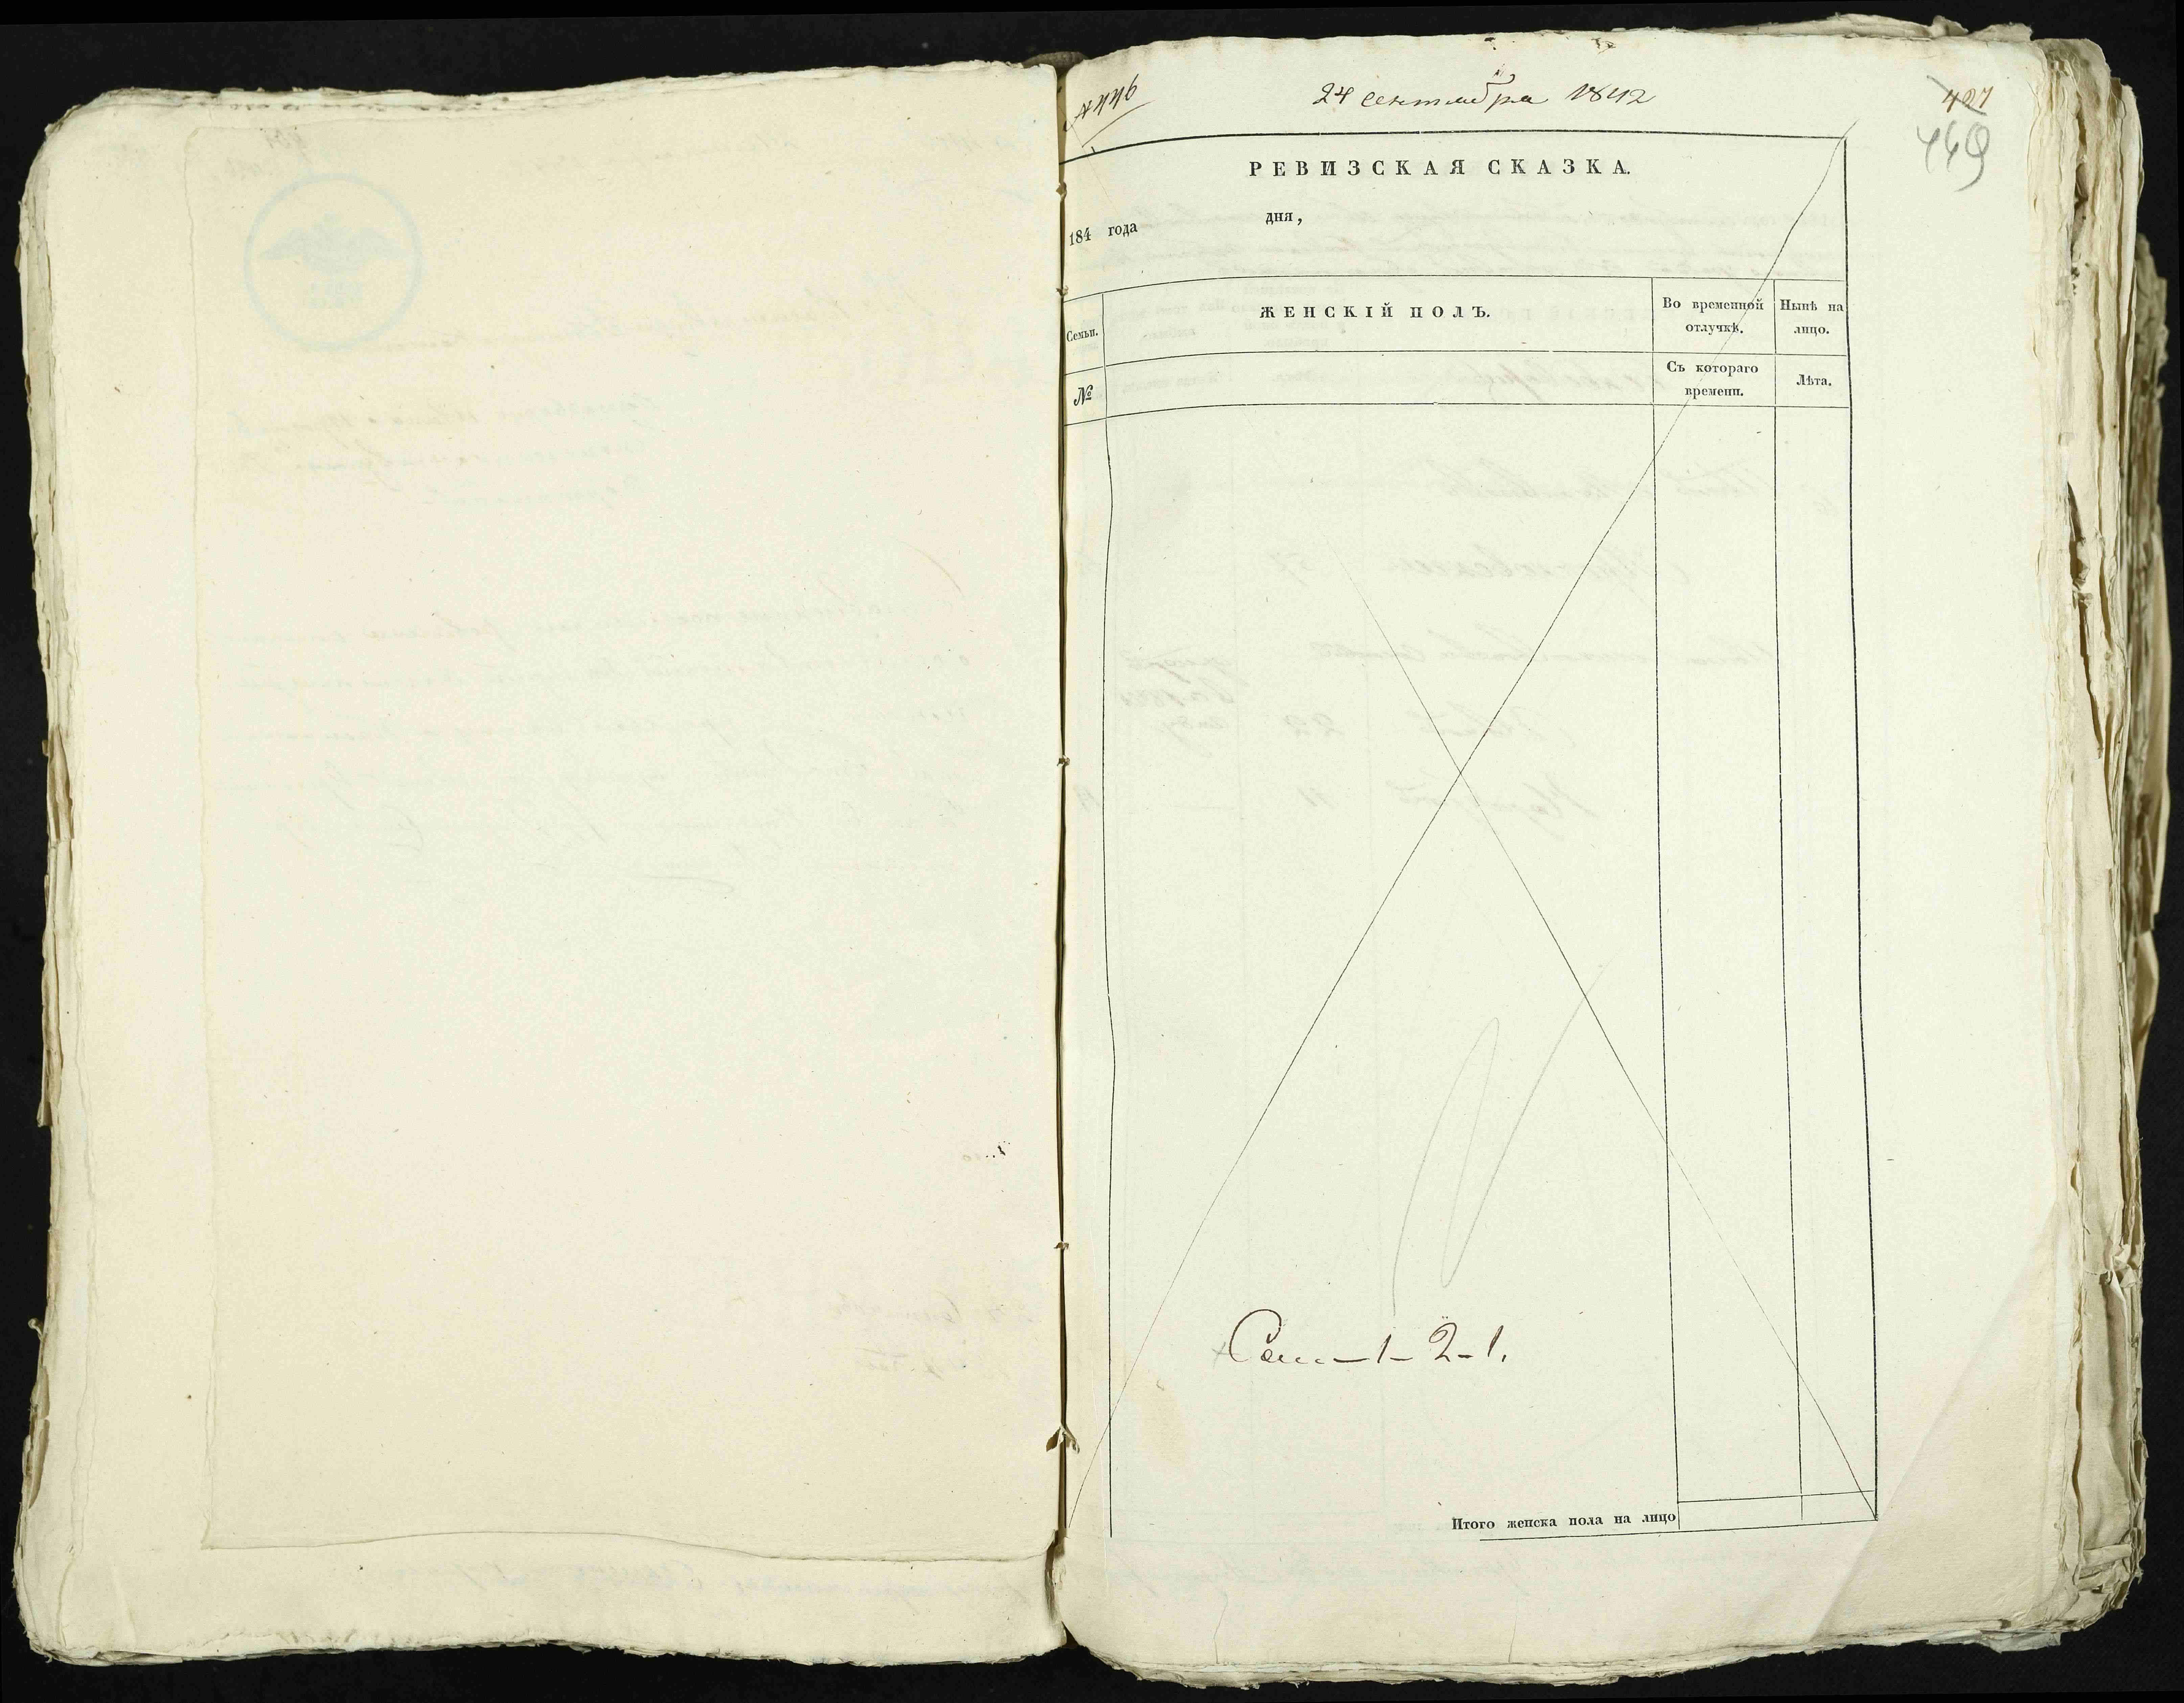 № 446
24 Сентября 1842
427
449
РЕВИЗСКАЯ СКАЗКА.
184 года дня,
Семьи.
ЖЕНСКІЙ ПОЛЪ.
Во временной отлучкѣ.
Нынѣ на лицо.
№
Съ котораго времени.
Лѣта.
1 - 2 - 1.
Итого женска пола на лицо